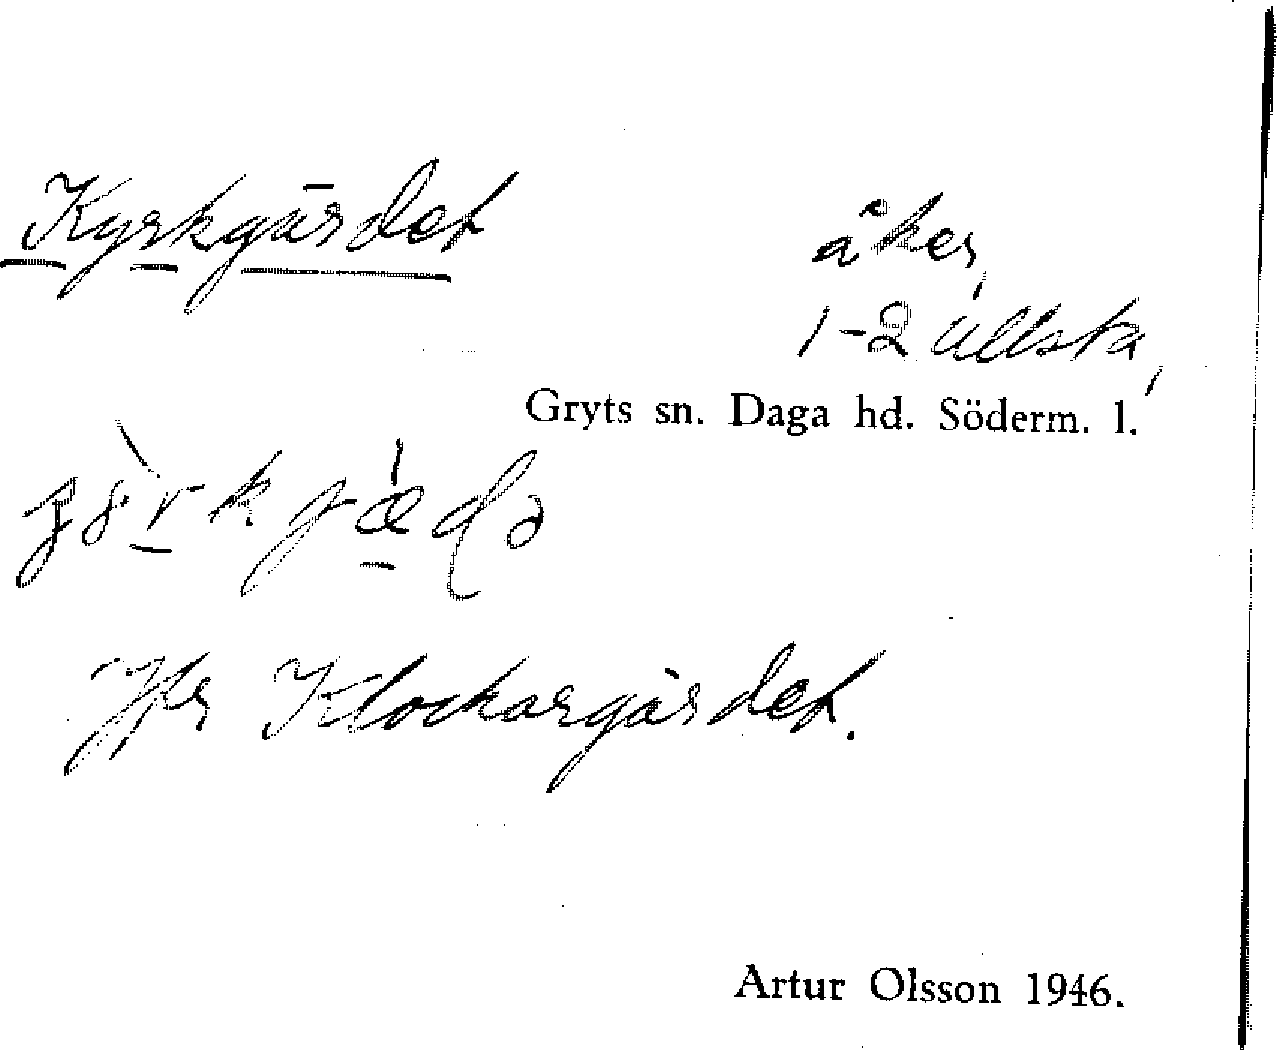 Kyrkgärdet
åker,
1-2 Ullsta,
Gryts sn. Daga hd. Söderm. l.
Jfr Klockargärdet.
Artur Olsson 1946.